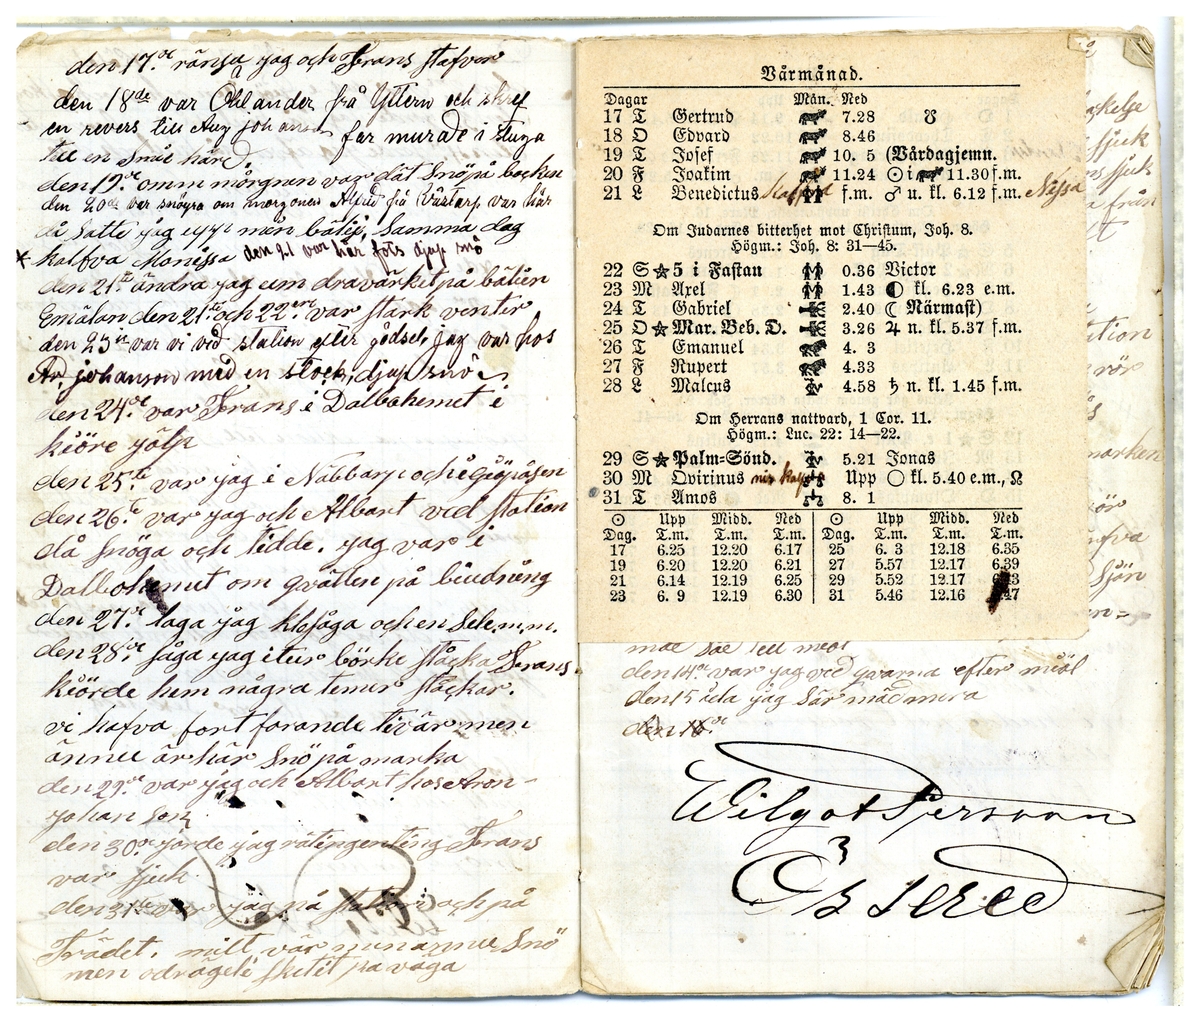 den 17de ränsa jag och Frans stafvor
den 18de var Öhlander från Yttern och skref
en revers till Aug johanson far murade i stuga
till en Små häre
den 19de omm mårgnan var dåt Snöpå backen
den 20de var snögra om morgonen Alfrid från Västorp var här
då satte jag upp min båtij, Samma dag
* kalfva Monissa den 21 var här fots djup snö
den 21te ändra jag um dravärket på båtien
Emälan den 21te och 22dre var stark venter
den 23je var vi vid station efter gödsel, jag var hos
Ar. johanson med en stock, djup snö
den 24de var Frans i Dalbohemet i
kiöre jölp
den 25te var jag i Nabbarp och
den 26te var jag och Albart ved station
då snöga och tidde. jag var i
Dalbohemet om qvälten på biudning
den 27de laga jag klofsåga och en Sele m.m.
den 28de såga jag itur börke stocka Frans
kiörde hem några temer stockar.
vi hafva fortfarande tivär men
ännu är här Snö på marka
den 29de var jag och Albart hos Aron
Johan Son
den 30de jorde jag rätingenting Frans
var sjuk
den 31te var jag på station och på
Trädet. milt vär men annu Snö
men odrägeli skitit pa väga
Vårmånad.
Dagar Mån. Ned
17 T Gertrud 7.28 ☋
18 O Edvard 8.46
19 T Josef 10. 5 (Vårdagjemn.
20 F Joakim 11.24 ☉ i 11.30 f.m.
21 L Benedictus Kalfvad f.m. ♂ u. kl. 6.12 f.m. Nissa
Om Judarnes bitterhet mot Christum, Joh. 8.
Högm.: Joh. 8: 31—45.
22 S ★ 5 i Fastan 0.36 Victor
23 M Axel 1.43 ◐ kl. 6.23 e.m.
24 T Gabriel 2.40 ☾ Närmast)
25 O ★ Mar. Beb. D. 3.26 ♃ n. kl. 5.37 f.m.
26 T Emanuel 4. 3
27 F Rupert 4.33
28 L Malcus 4.58 ♄ n. kl. 1.45 f.m.
Om Herrans nattvard, 1 Cor. 11.
Högm.: Luc. 22: 14—22.
29 S ★ Palm-Sönd. 5.21 Jonas
30 M Qvirinus Upp ○ kl. 5.40 e.m., ☊
31 T Amos 8. 1
☉ Upp Midd. Ned ☉ Upp Midd. Ned
Dag. T.m. T.m. T.m. Dag. T.m. T.m. T.m.
17 6.25 12.20 6.17 25 6. 3 12.18 6.35
19 6.20 12.20 6.21 27 5.57 12.17 6.39
21 6.14 12.19 6.25 29 5.52 12.17
23 6. 9 12.19 6.30 31 5.46 12.16
den 14de var jag ved qvarna efter miöl
den 15 åcla jag Sär mäd mera
den 16de
Wilgot Persson
Ö